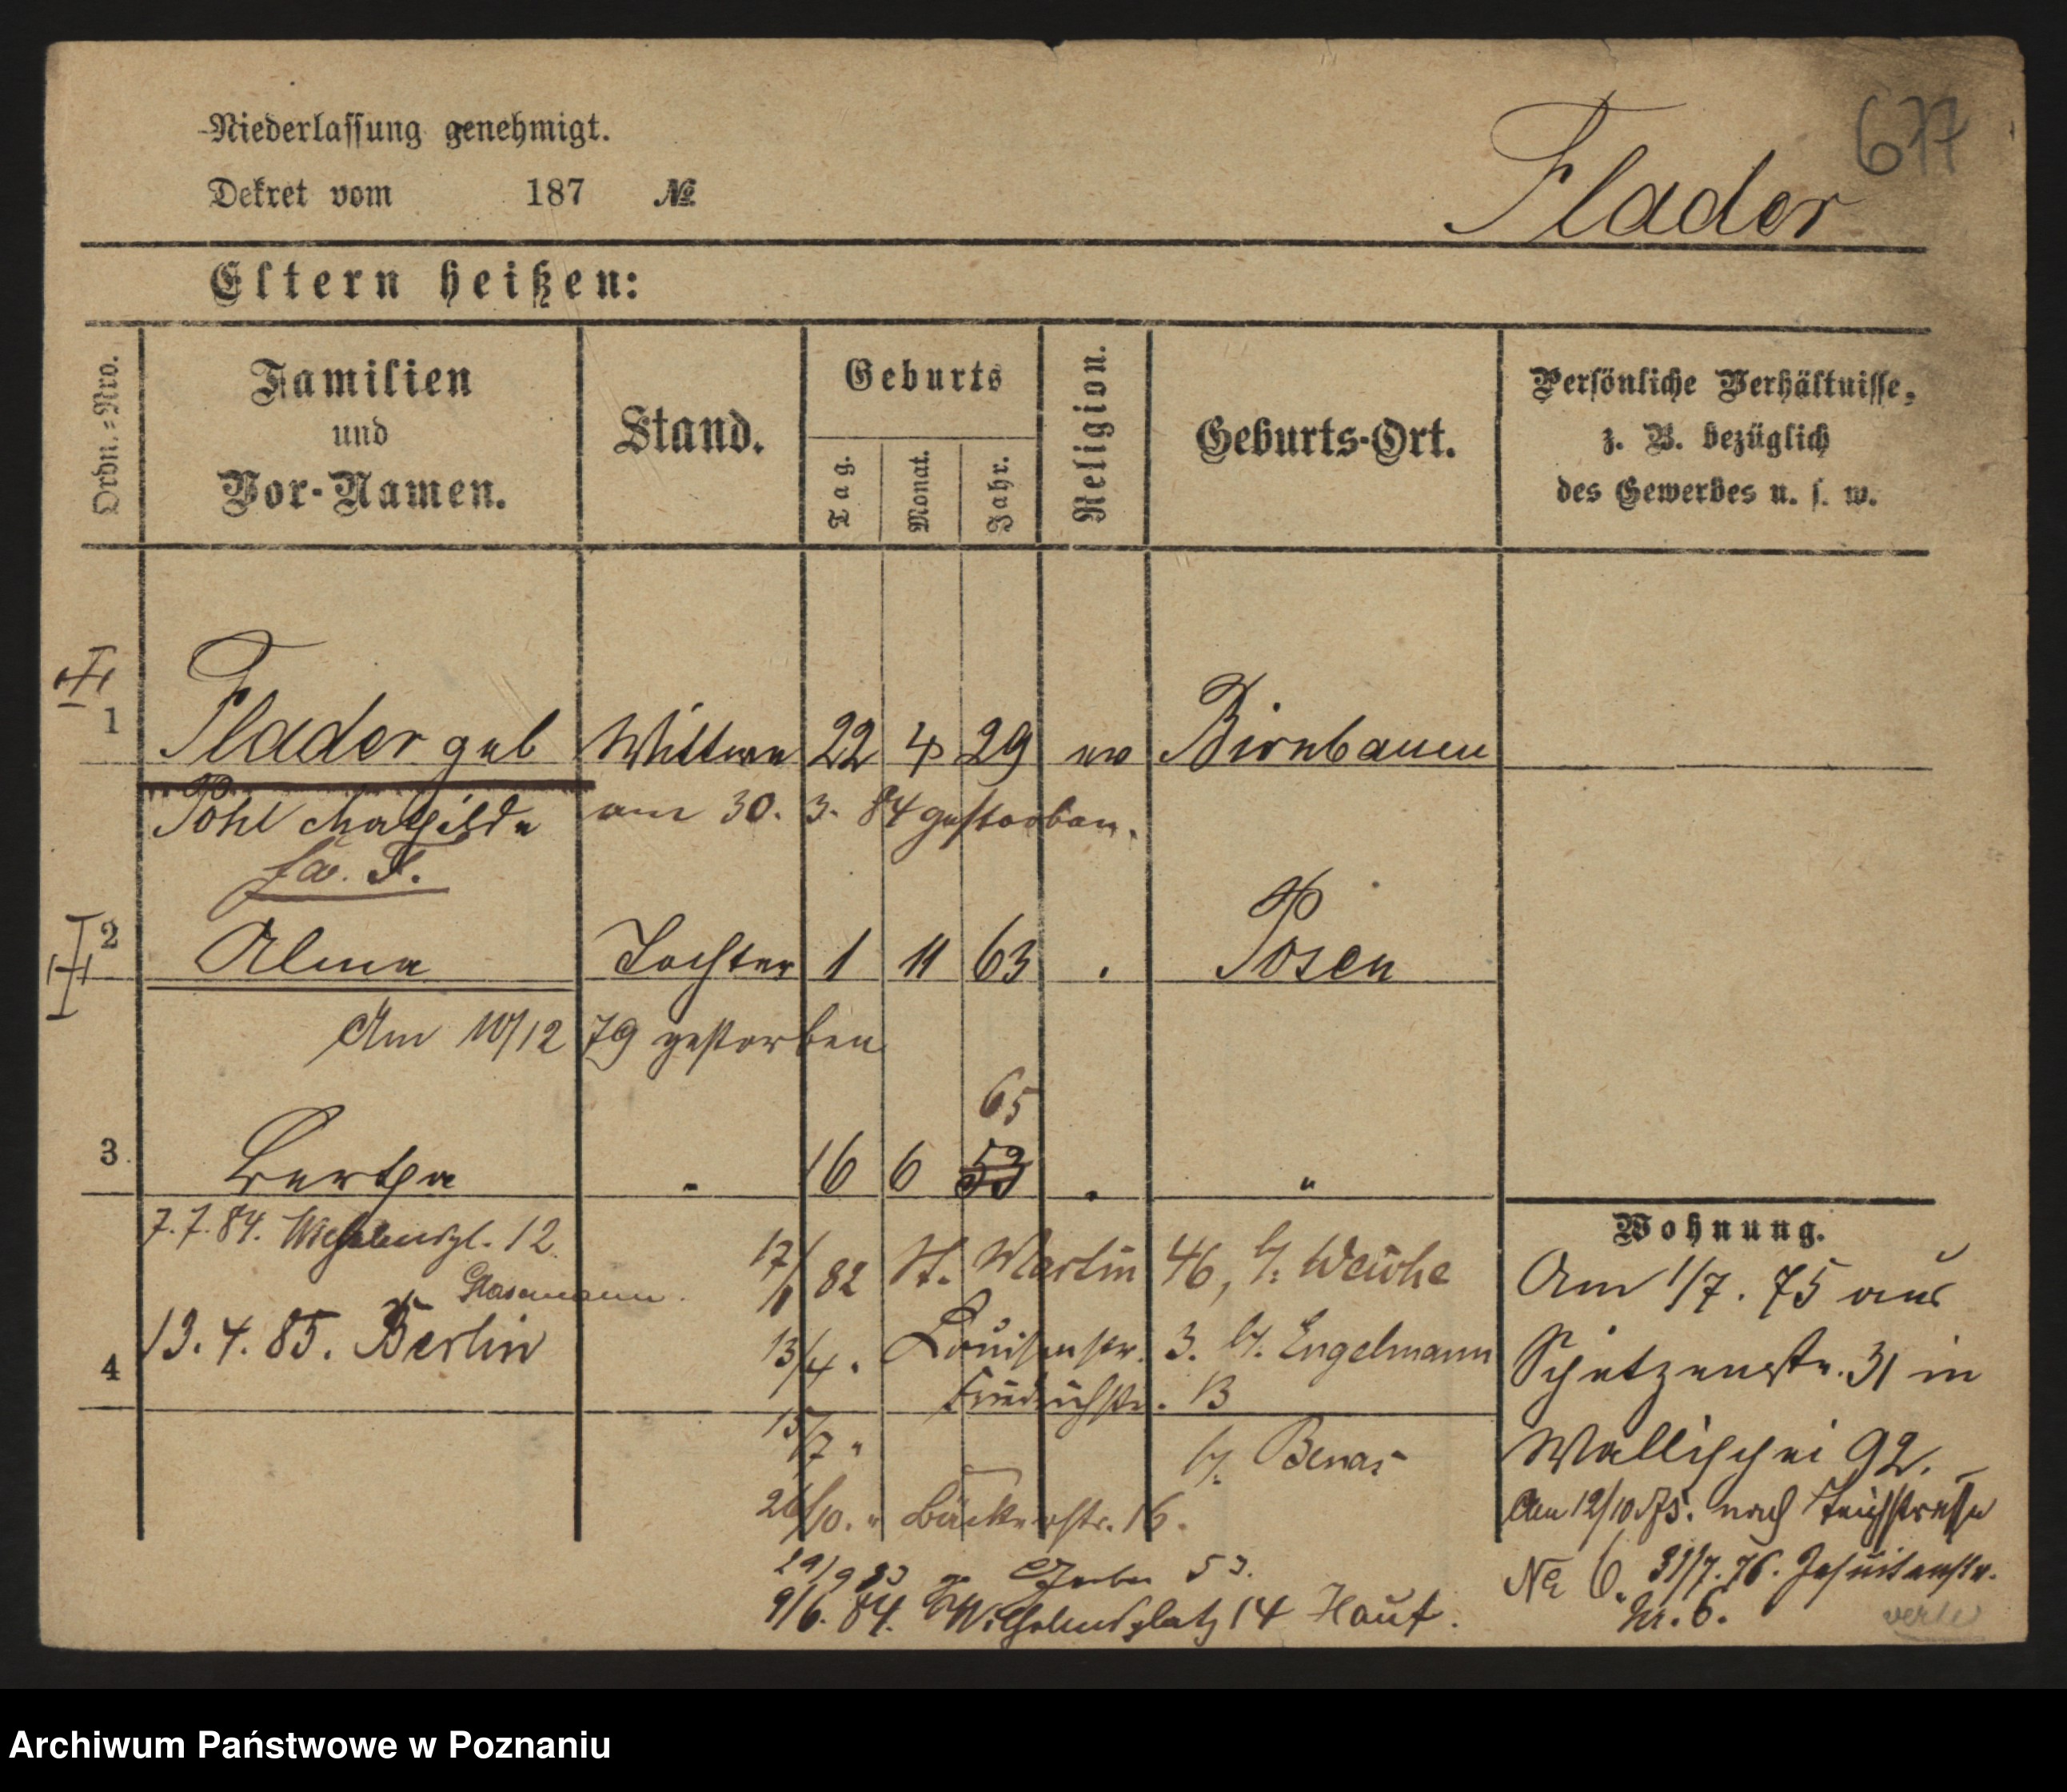 677
Niederlassung genehmigt.
Dekret vom 187 №
Flader
Eltern heißen:
Ordn.=Nro.
Familien
und
Vor-Namen.
Stand.
Geburts
Tag.
Monat.
Jahr.
Religion.
Geburts-Ort.
Persönliche Verhältnisse,
z. B. bezüglich
des Gewerbes u. s. w.
1 Flader geb Wittwe 22 4 29 ev Birnbaum
Pohl Mathilde am 30. 3. 84 gestorben.
2 Alma Tochter 1 11 63 . Posen
Am 10/12 79 gestorben
65
3 Bertha " 16 6 53 " "
Wohnung.
7.7.84. 12
17/1 82 St. Martin 46, b/. Weiche
Am 1/7. 75 aus
13. 4. 85. Berlin
4
13/4 " Louisenstr. 3. b/. Engelmann
Schützenstr. 31 in
Friedrichstr. 13
15/7 " b/. Benas
Wallischei 92.
26/10. " Bäckerstr. 16.
Am 12/10 75. nach Teichstrasse
29/9 83 53.
No 6. 31/7. 76. Jesuitenstr.
9/6. 84. Wilhelmsplatz 14 Hauf.
Nr. 6.
verte
Archiwum Państwowe w Poznaniu